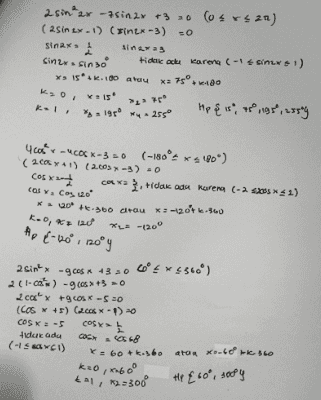 2 sin² 2x - 7 sin 2x + 3 = 0 (0 ≤ x ≤ 2π)
(2 sin 2x - 1) (sin 2x - 3) = 0
sin 2x = 1/2 sin 2x = 3
sin 2x = sin 30° tidak ada karena (-1 ≤ sin 2x ≤ 1)
x = 15° + k.180 atau x = 75° + k.180
k = 0, x = 15° x₂ = 75°
k = 1, x₃ = 195° x₄ = 255° Hp { 15°, 75°, 195°, 255° }
4 cos² x - 4 cos x - 3 = 0 (-180° ≤ x ≤ 180°)
(2 cos x + 1) (2 cos x - 3) = 0
cos x = -1/2 cos x = 3/2, tidak ada karena (-2 ≤ 2cos x ≤ 2)
cos x = cos 120°
x = 120° + k.360 atau x = -120° + k.360
k = 0, x₁ = 120° x₂ = -120°
Hp { -120°, 120° }
2 sin² x - 9 cos x + 3 = 0 (0° ≤ x ≤ 360°)
2 (1 - cos² x) - 9 cos x + 3 = 0
2 cos² x + 9 cos x - 5 = 0
(cos x + 5) (2 cos x - 1) = 0
cos x = -5 cos x = 1/2
tidak ada cos x = cos 60
(-1 ≤ cos x ≤ 1)
x = 60 + k.360 atau x = -60° + k.360
k = 0, x = 60°
k = 1, x₂ = 300° Hp { 60°, 300° }